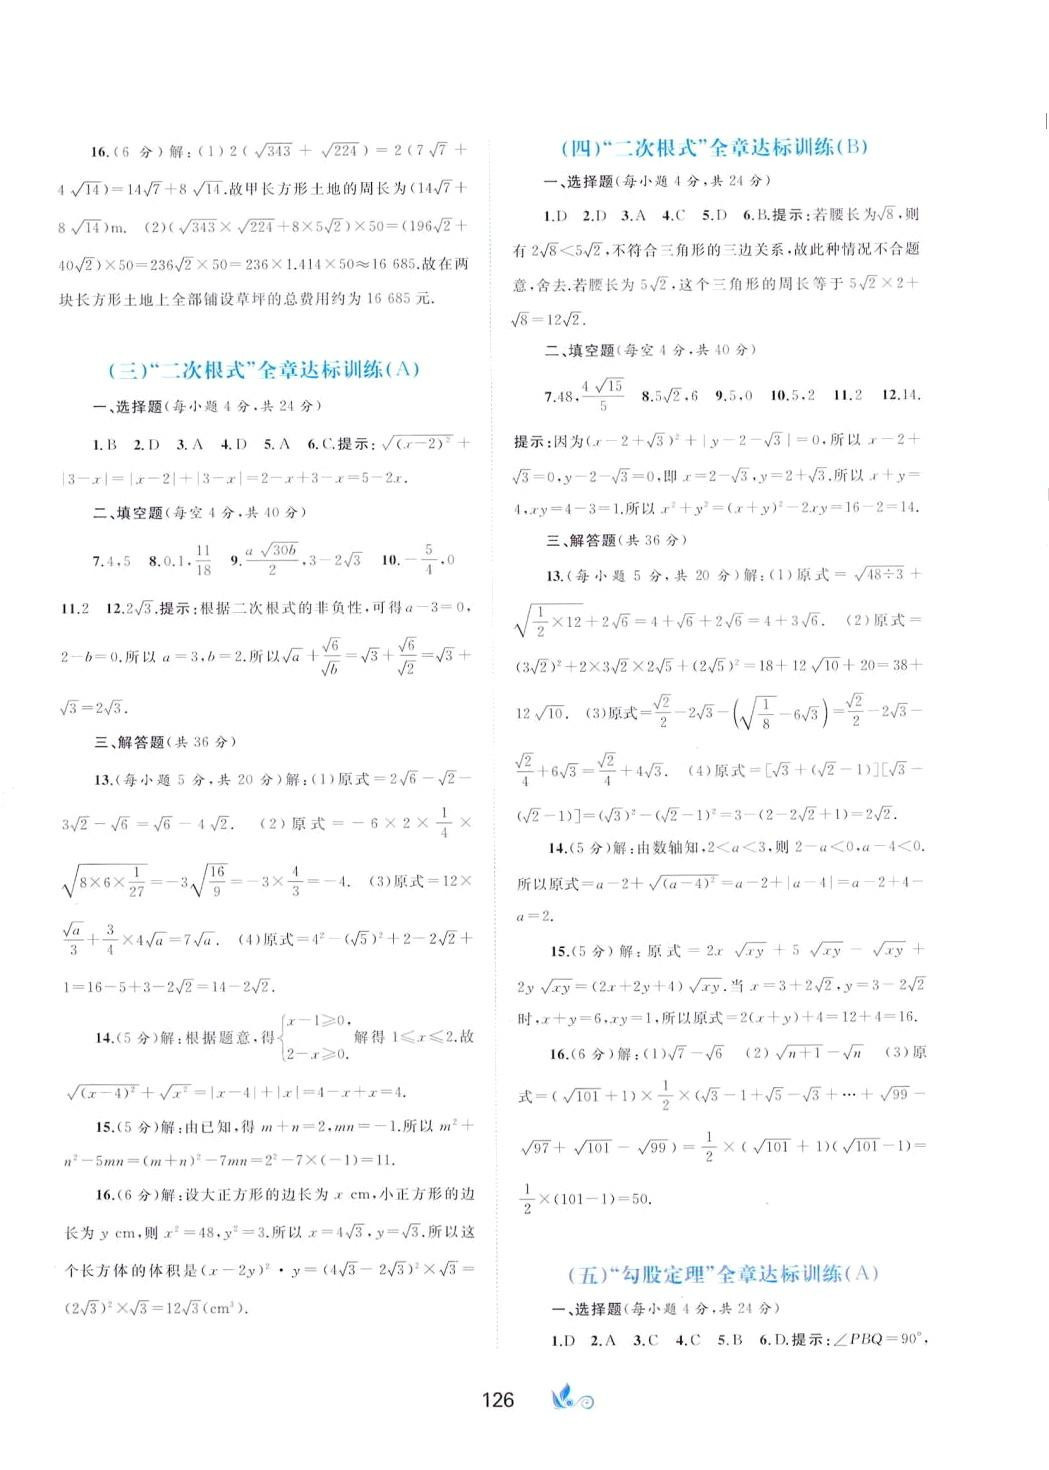 16.(6 分)解:(1)2(√343 + √224) = 2(7√7 +
4√14)=14√7+8√14.故甲长方形土地的周长为(14√7+
8√14)m. (2)(√343×√224+8×5√2)×50=(196√2+
40√2)×50=236√2×50=236×1.414×50≈16 685.故在两
块长方形土地上全部铺设草坪的总费用约为 16 685 元.
(三)“二次根式”全章达标训练(A)
一、选择题(每小题 4 分,共 24 分)
1.B 2.D 3.A 4.D 5.A 6.C.提示:√(x−2)² +
|3−x|=|x−2|+|3−x|=2−x+3−x=5−2x.
二、填空题(每空 4 分,共 40 分)
7.4,5 8.0.1,11/18 9.a√30b/2,3−2√3 10.−5/4,0
11.2 12.2√3.提示:根据二次根式的非负性,可得 a−3=0,
2−b=0.所以 a=3,b=2.所以√a+√6/√b=√3+√6/√2=√3+
√3=2√3.
三、解答题(共 36 分)
13.(每小题 5 分,共 20 分)解:(1)原式=2√6−√2−
3√2−√6=√6−4√2. (2)原式=−6×2×1/4×
√(8×6×1/27)=−3√(16/9)=−3×4/3=−4. (3)原式=12×
√a/3+3/4×4√a=7√a. (4)原式=4²−(√5)²+2−2√2+
1=16−5+3−2√2=14−2√2.
14.(5 分)解:根据题意,得{x−1≥0, 2−x≥0. 解得 1≤x≤2.故
√(x−4)²+√x²=|x−4|+|x|=4−x+x=4.
15.(5 分)解:由已知,得 m+n=2,mn=−1.所以 m²+
n²−5mn=(m+n)²−7mn=2²−7×(−1)=11.
16.(6 分)解:设大正方形的边长为 x cm,小正方形的边
长为 y cm,则 x²=48,y²=3.所以 x=4√3,y=√3.所以这
个长方体的体积是(x−2y)²·y=(4√3−2√3)²×√3=
(2√3)²×√3=12√3(cm³).
(四)“二次根式”全章达标训练(B)
一、选择题(每小题 4 分,共 24 分)
1.D 2.D 3.A 4.C 5.D 6.B.提示:若腰长为√8,则
有 2√8<5√2,不符合三角形的三边关系,故此种情况不合题
意,舍去.若腰长为 5√2,这个三角形的周长等于 5√2×2+
√8=12√2.
二、填空题(每空 4 分,共 40 分)
7.48,4√15/5 8.5√2,6 9.5,0 10.5,2 11.2 12.14.
提示:因为(x−2+√3)²+|y−2−√3|=0,所以 x−2+
√3=0,y−2−√3=0,即 x=2−√3,y=2+√3.所以 x+y=
4,xy=4−3=1.所以 x²+y²=(x+y)²−2xy=16−2=14.
三、解答题(共 36 分)
13.(每小题 5 分,共 20 分)解:(1)原式=√48÷3+
√(1/2×12)+2√6=4+√6+2√6=4+3√6. (2)原式=
(3√2)²+2×3√2×2√5+(2√5)²=18+12√10+20=38+
12√10. (3)原式=√2/2−2√3−(√(1/8)−6√3)=√2/2−2√3−
√2/4+6√3=√2/4+4√3. (4)原式=[√3+(√2−1)][√3−
(√2−1)]=(√3)²−(√2−1)²=3−(2−2√2+1)=2√2.
14.(5 分)解:由数轴知,2<a<3,则 2−a<0,a−4<0.
所以原式=a−2+√(a−4)²=a−2+|a−4|=a−2+4−
a=2.
15.(5 分)解:原式=2x√xy+5√xy−√xy+
2y√xy=(2x+2y+4)√xy.当 x=3+2√2,y=3−2√2
时,x+y=6,xy=1,所以原式=2(x+y)+4=12+4=16.
16.(6 分)解:(1)√7−√6 (2)√n+1−√n (3)原
式=(√101+1)×1/2×(√3−1+√5−√3+…+√99−
√97+√101−√99)=1/2×(√101+1)(√101−1)=
1/2×(101−1)=50.
(五)“勾股定理”全章达标训练(A)
一、选择题(每小题 4 分,共 24 分)
1.D 2.A 3.C 4.C 5.B 6.D.提示:∠PBQ=90°,
126